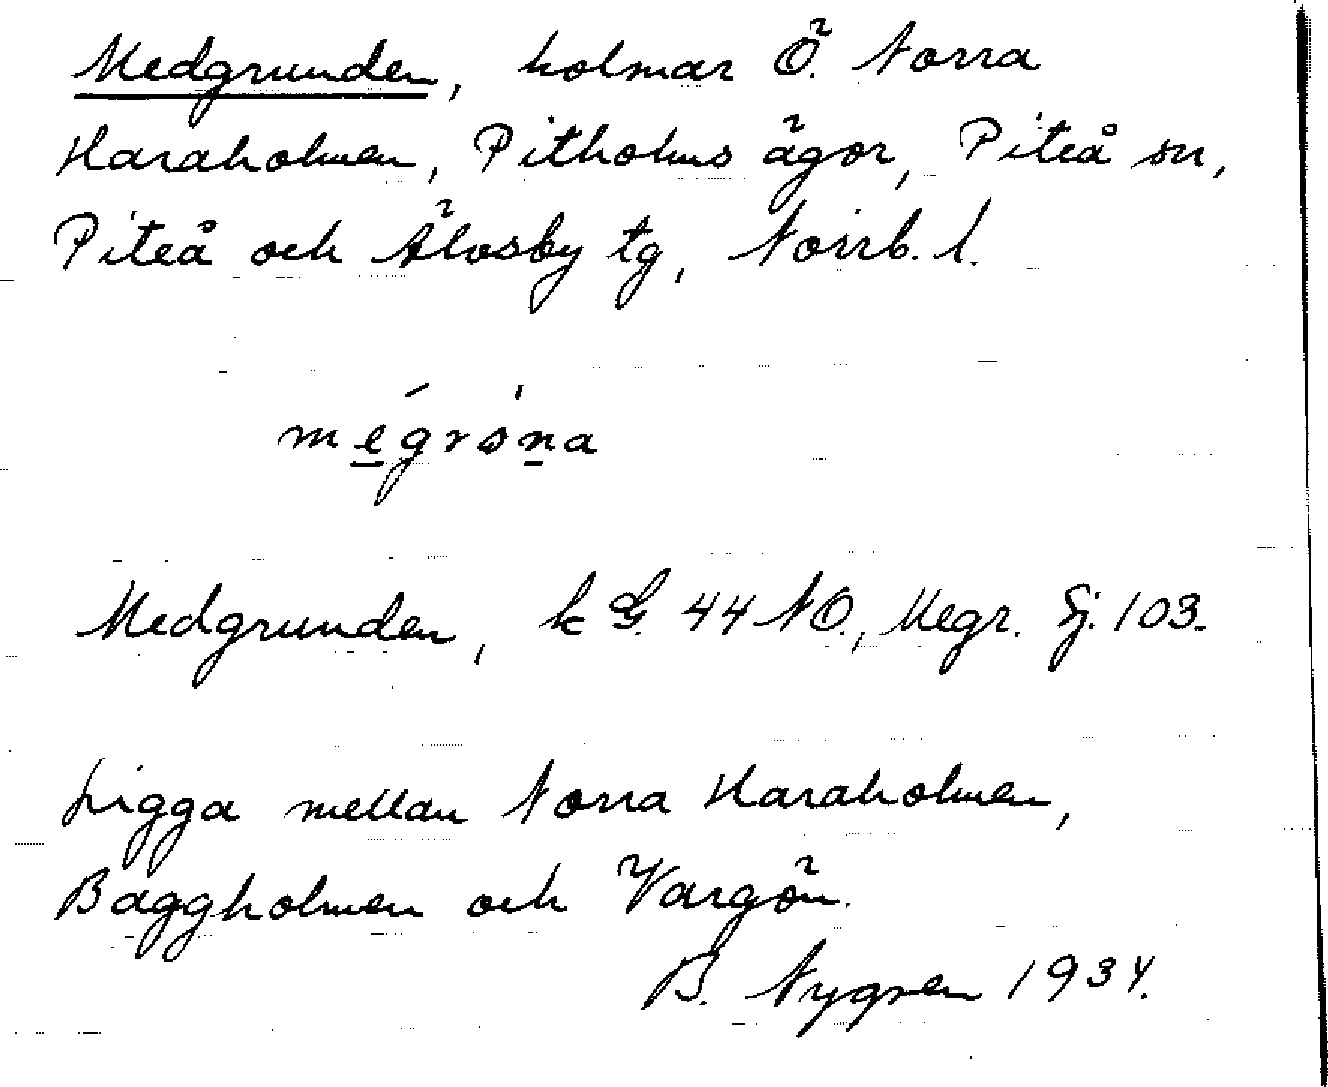 Medgrunden, holmar Ö. Norra
Haraholmen, Pitholms ägor, Piteå sn,
Piteå och Älvsby tg, Norrb. l.
mégróna
Medgrunden, k G. 44 NO., Megr. Sj. 103.
Ligga mellan Norra Haraholmen,
Baggholmen och Vargön.
B. Nygren 1934.